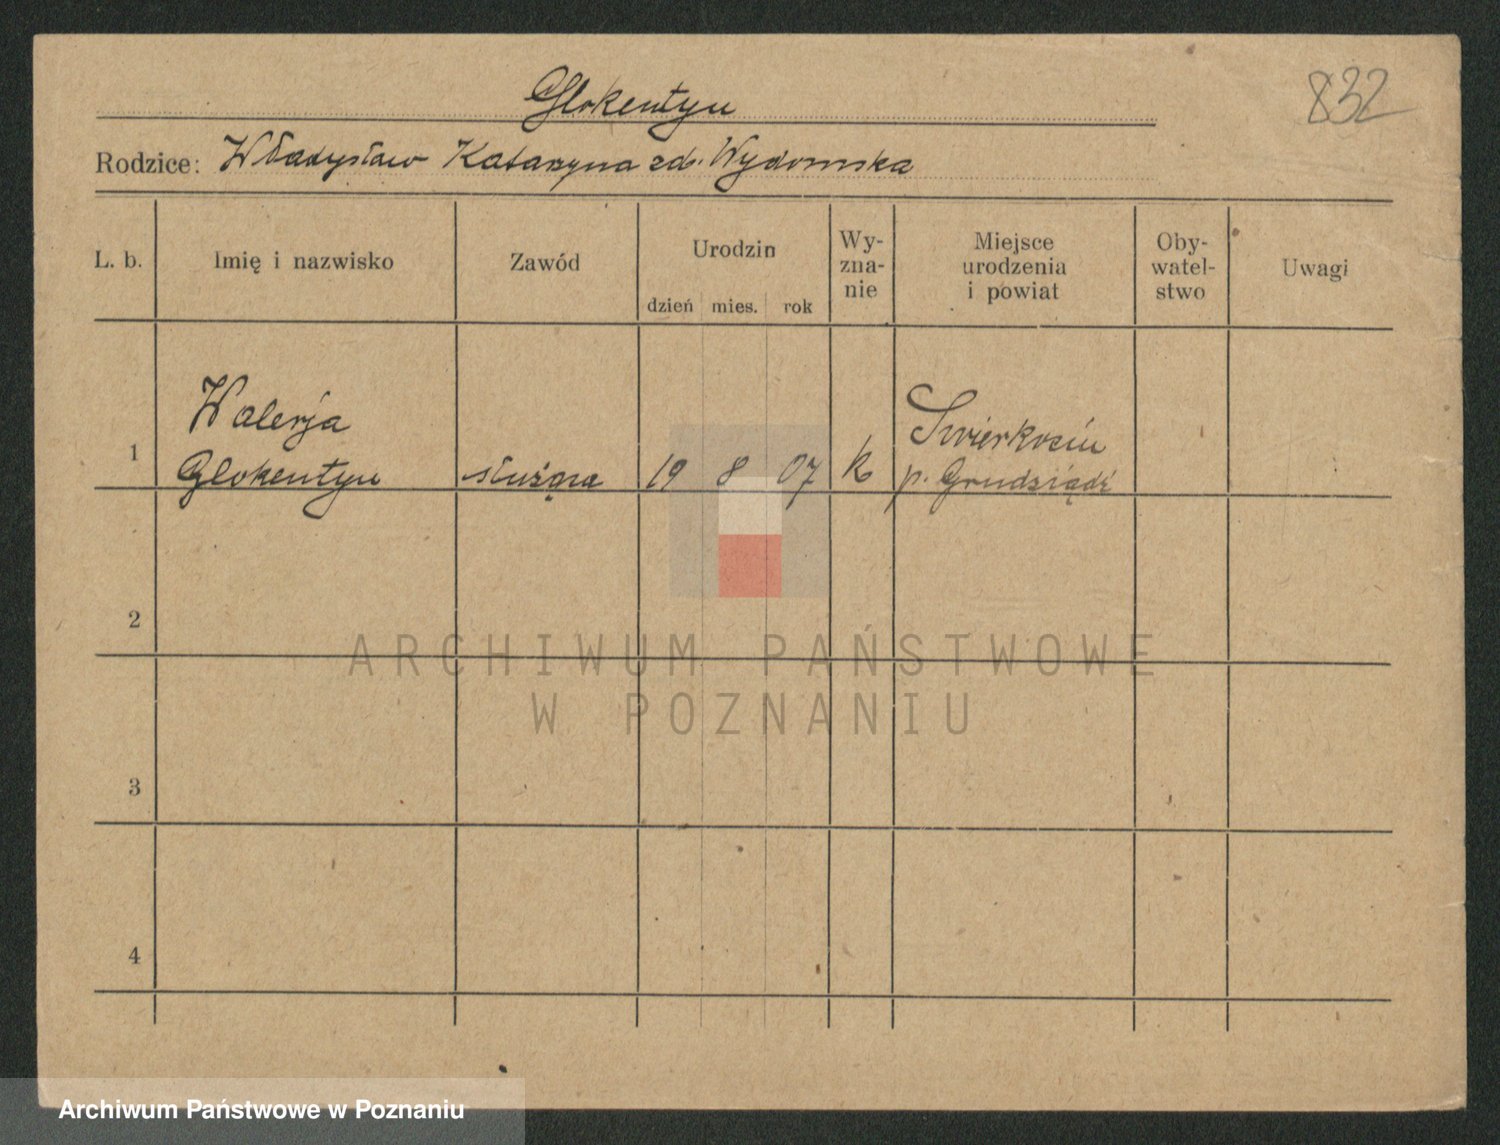 Glokentyn
832
Rodzice: Władysław Katarzyna zd. Wydomska
L. b.
Imię i nazwisko
Zawód
Urodzin
dzień mies. rok
Wy-
zna-
nie
Miejsce
urodzenia
i powiat
Oby-
watel-
stwo
Uwagi
1
Walerja
Glokentyn
służąca
19 8 07
k
Swierkosin
p. Grudziądz
2
3
4
ARCHIWUM PAŃSTWOWE
W POZNANIU
Archiwum Państwowe w Poznaniu